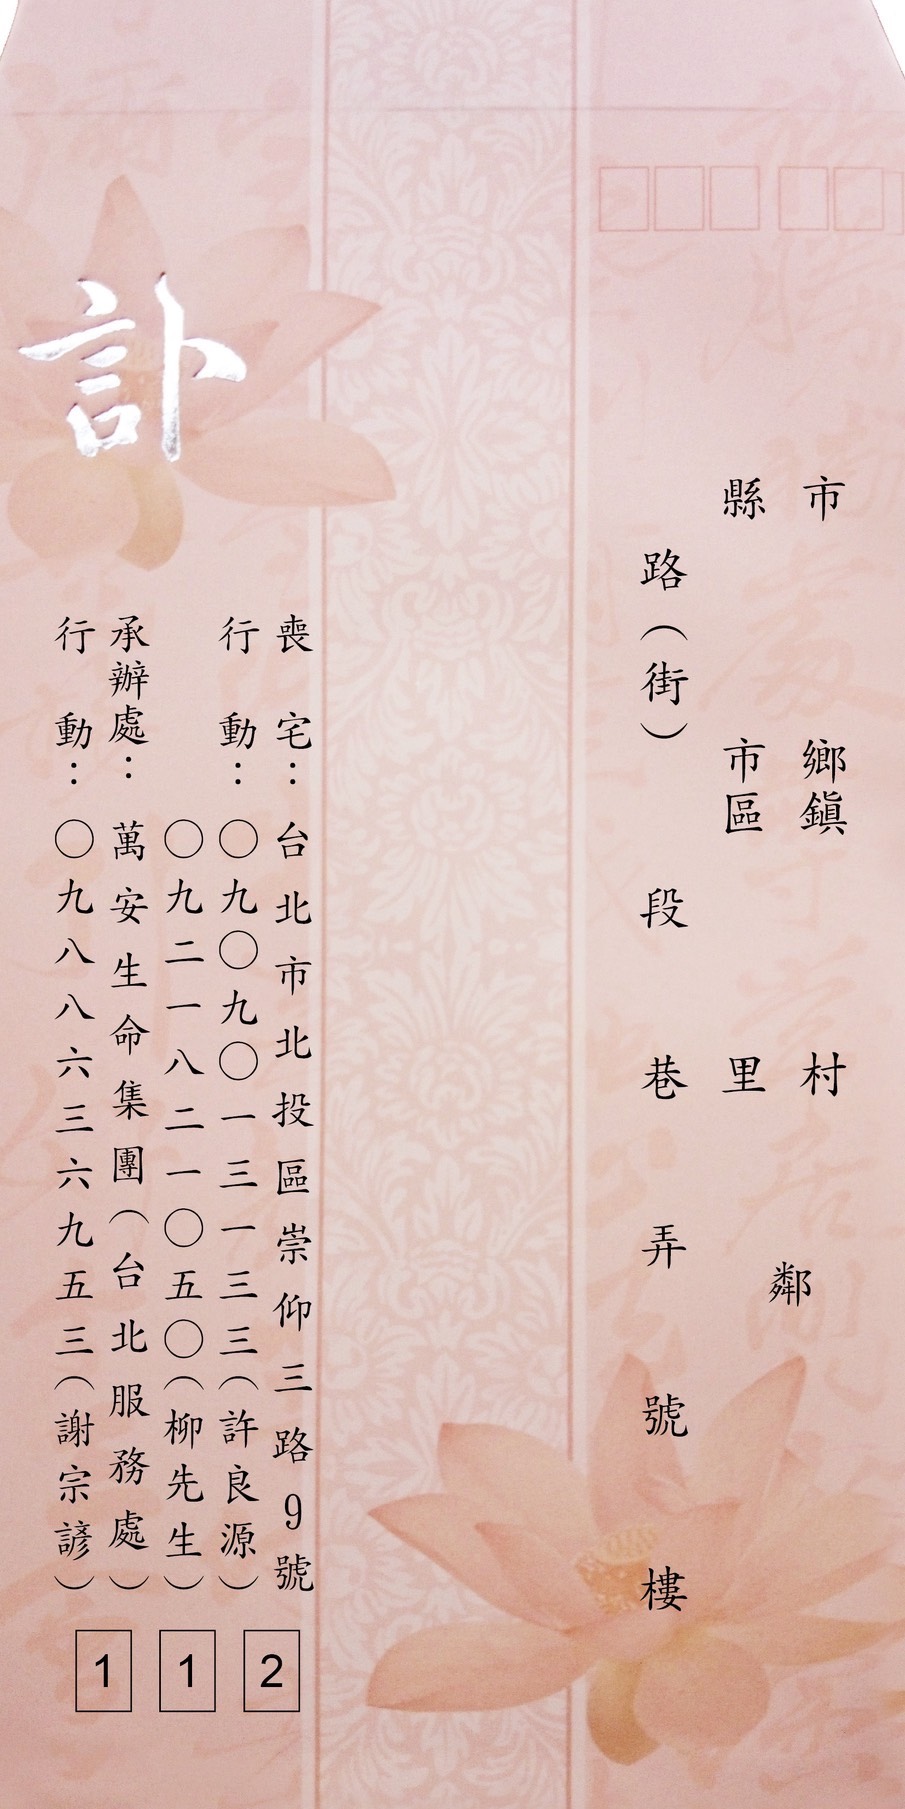 市 鄉鎮 村
縣 市區 里 鄰
路（街） 段 巷 弄 號 樓
訃
喪宅：台北市北投區崇仰三路9號
行動：〇九〇九〇一三一三三（許良源）
〇九二一八二一〇五〇（柳先生）
承辦處：萬安生命集團（台北服務處）
行動：〇九八八六三六九五三（謝宗諺）
112